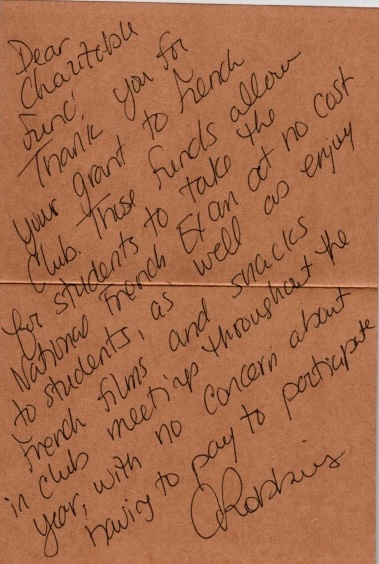 Dear
Charitable
Fund,
Thank you for
your grant to French
Club. Those funds allow
for students to take the
National French Exam at no cost
to students, as well as enjoy
French films and snacks
in club meetings throughout the
year, with no concern about
having to pay to participate